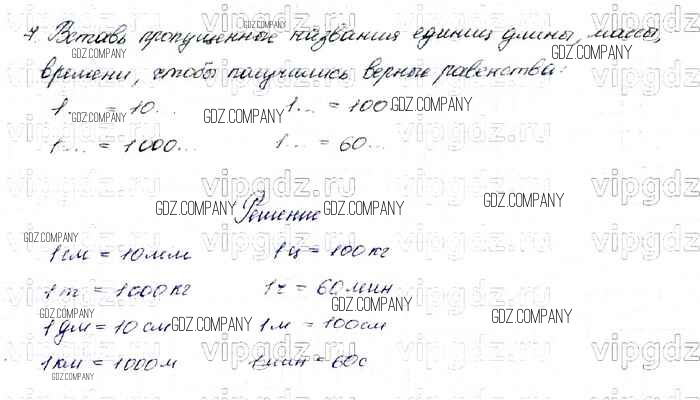 7. Вставь пропущенное названия единиц длины, массы,
времени, чтобы получились верные равенства:
1... = 10... 1... = 100
1... = 1000... 1... = 60...
Решение
1 см = 10 мм 1 ц = 100 кг
1 т = 1000 кг 1 ч = 60 мин
1 дм = 10 см 1 м = 100 см
1 км = 1000 м 1 мин = 60 с
GDZ.COMPANY
vipgdz.ru